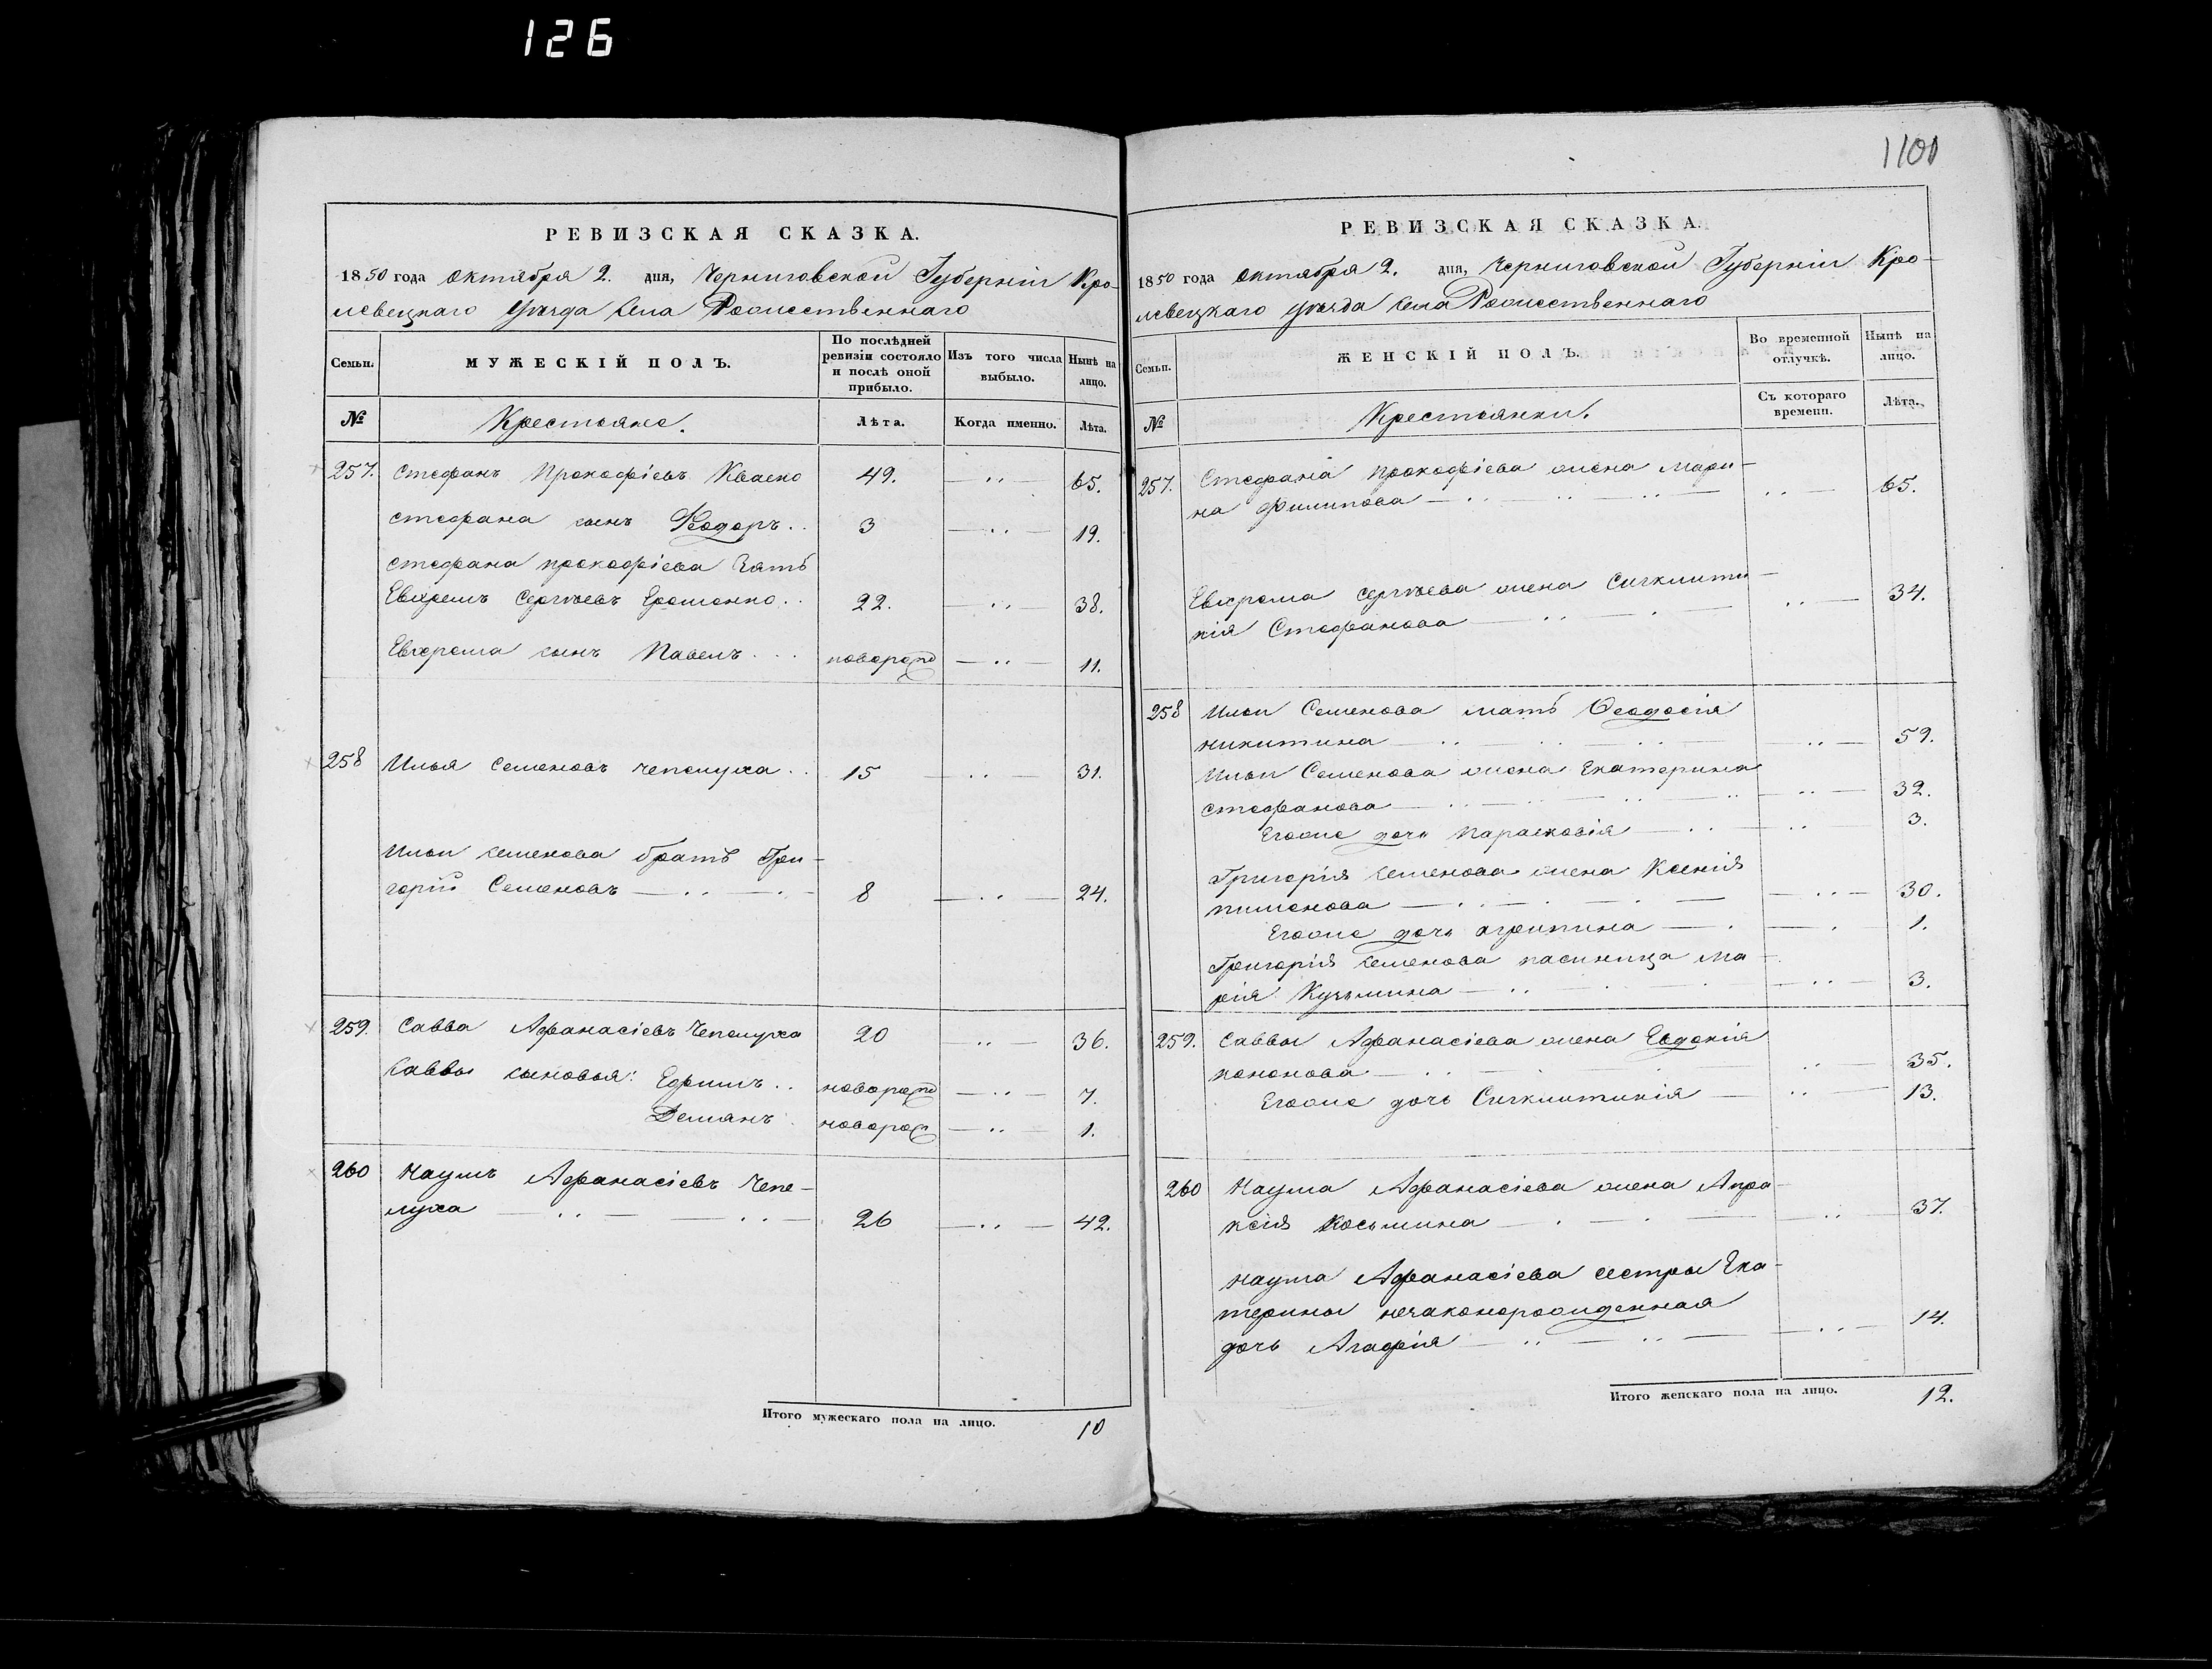 126
1101
РЕВИЗСКАЯ СКАЗКА.
1850 года Октября 2. дня, Черниговской Губерніи Кро-
левецкаго уѣзда села Рожественнаго
Семьи. МУЖЕСКІЙ ПОЛЪ. По послѣдней ревизіи состояло и послѣ оной прибыло. Изъ того числа выбыло. Нынѣ на лицо.
№ Крестьяне. Лѣта. Когда именно. Лѣта.
257. Стефанъ Прокофіевъ Кваско 49. 65.
Стефана сынъ Феодоръ 3 19.
Стефана Прокофіева Зять
Евфремъ Сергѣевъ Ерошенко 22. 38.
Евфрема сынъ Павелъ новорожд 11.
258 Илья Семеновъ Чепелуха 15 31.
Ильи Семенова братъ Гри-
горій Семеновъ 8 24.
259. Савва Афанасіевъ Чепелуха 20 36.
Саввы сыновья: Ефимъ новорожд 7.
Демянъ новорож 1.
260 Наумъ Афанасіевъ Чепе-
луха 26 42.
Итого мужескаго пола на лицо. 10
РЕВИЗСКАЯ СКАЗКА.
1850 года Октября 2. дня, Черниговской Губерніи Кро-
левецкаго уѣзда села Рожественнаго
Семьи. ЖЕНСКІЙ ПОЛЪ. Во временной отлучкѣ. Нынѣ на лицо.
№ Крестьянки. Съ котораго времени. Лѣта.
257. Стефана Прокофіева жена Мари-
на Филипова 65.
Евфрема Сергѣева жена Сигклити-
кія Стефанова 34.
258 Ильи Семенова мать Феодосія
Никитина 59.
Ильи Семенова жена Екатерина
Стефанова 32.
Егоже дочь Парасковія 3.
Григорія Семенова жена Ксенія
Пименова 30.
Егоже дочь Агрипина 1.
Григорія Семенова пасиница Ма-
рія Кузьмина 3.
259. Саввы Афанасіева жена Евдокія
Кононова 35.
Егоже дочь Сигклитикія 13.
260 Наума Афанасіева жена Апра-
ксія Косьмина 37.
Наума Афанасіева сестры Ека-
терины незаконорожденная
дочь Агафія 14.
Итого женскаго пола на лицо. 12.